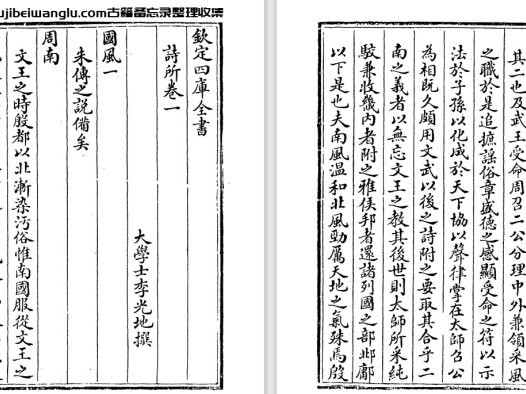 ujibeiwanglu.com古籍备忘录整理收集
欽定四庫全書
詩所卷一
大學士李光地撰
國風一
朱傳之說備矣
周南
文王之時殷都以北漸染汚俗惟南國服從文王之
其二也及武王受命周召二公分理中外兼領采風
之職於是追摭謠俗章盛德之感顯受命之符以示
法於子孫以化成於天下協以聲律掌在太師召公
為相旣久頗用文武以後之詩附之要取其合乎二
南之義者以無忘文王之教其後世則太師所采純
駁兼收畿內者附之雅侯邦者還諸列國之部邶鄘
以下是也夫南風温和北風勁厲天地之氣殊焉殷